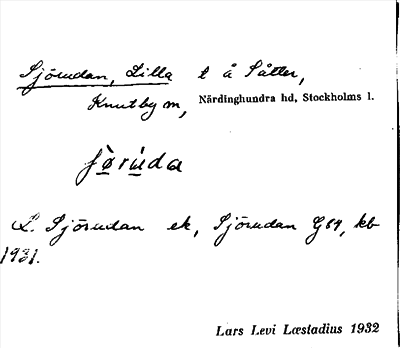 Sjörudan, Lilla t å Sätter,
Knutby sn, Närdinghundra hd, Stockholms l.
L. Sjörudan ek, Sjörudan G 64, kb
1931.
Lars Levi Læstadius 1932